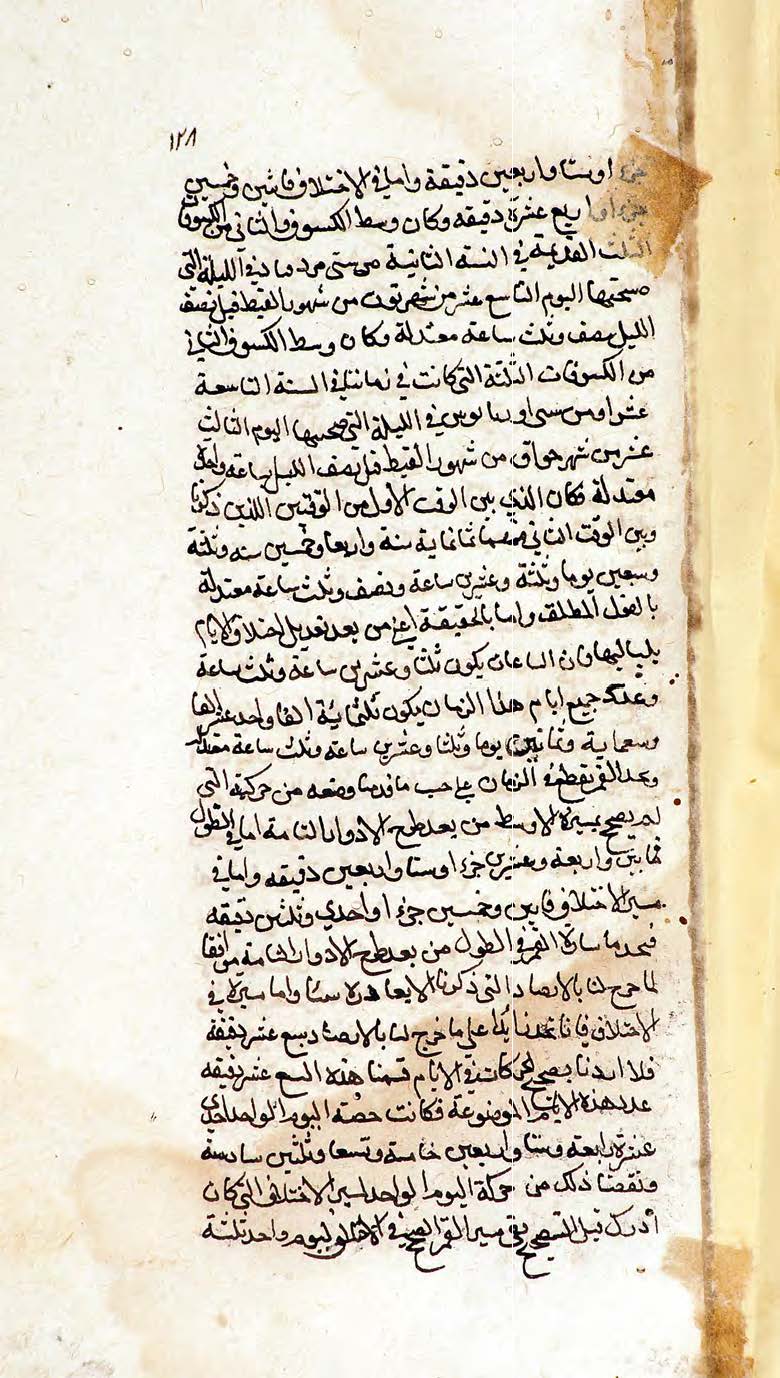 ١٢٨
جزءا وستا واربعين دقيقة واما في الاختلاف فمايتين وخمسين
جزءا واربع عشرة دقيقه وكان وسط الكسوف والثاني من الكسوفات
الثلث القديمة في السنة الثانية من سنى مردمادفي الليلة التي
صبحتها اليوم التاسع عشر من شهر توت من شهور القبط قبل نصف
الليل بنصف وثلث ساعة معتدلة وكان وسط الكسوف الثاني
من الكسوفات الثلثة التي كانت في زماننا في السنة التاسعة
عشرا ومن سنى ادريانوس في الليلة التي صبحتها اليوم الثالث
عشر من شهر حواق من شهور القبط قبل نصف الليل بساعة واحدة
معتدلة فكان الذي بين الوقت الاول من الوقتين اللذين ذكرنا
وبين الوقت الثاني منهما ثمانماية سنة واربعا وخمسين سنه وثلثة
وسبعين يوما وثلثة وعشرين ساعة ونصف وثلث ساعة معتدلة
بالقول المطلق واما بالحقيقة اعني من بعد تعديل اختلاف الايام
بلياليها فان الساعات يكون ثلثا وعشرين ساعة وثلث ساعة
وعدد جميع ايام هذا الزمان يكون ثلثماية الفا واحد عشر الفا
وسبعماية وثمانين يوما وثلثا وعشرين ساعة وثلث ساعة معتدلة
ونجد القمر يقطع في الزمان على حسب ما قدمنا وصفه من حركته التي
لم يصحح بمسيرة الاوسط من بعد طرح الادوار التامة اما في الطول
فمايتين واربعة وعشرين جزءا وستا واربعين دقيقه واما في
مسير الاختلاف فمايتين وخمسين جزءا واحدي وثلثين دقيقه
فنجد ما سارة القمر في الطول من بعد طرح الادوار التامة موافقا
لما خرج لنا بالارصاد التي ذكرنا لا يغادره شيئا واما مسيرة في
الاختلاف فانا نجدنا يدا علي ما خرج لنا بالارصاد بسبع عشر دقيقة
فلما اردنا تصحيح الحركات في الايام قسمنا هذه السبع عشر دقيقه
عدد هذه الايام الموضوعة فكانت حصته اليوم الواحد احدي
عشرة رابعة وستا واربعين خامسة وتسعا وثلثين سادسة
ونقصنا ذلك من حركة اليوم الواحد لمسير الاختلاف التي كان
أدرك قبل التصحيح بقي مسير القمر الصحيح في الاختلاف ليوم واحد ثلثة